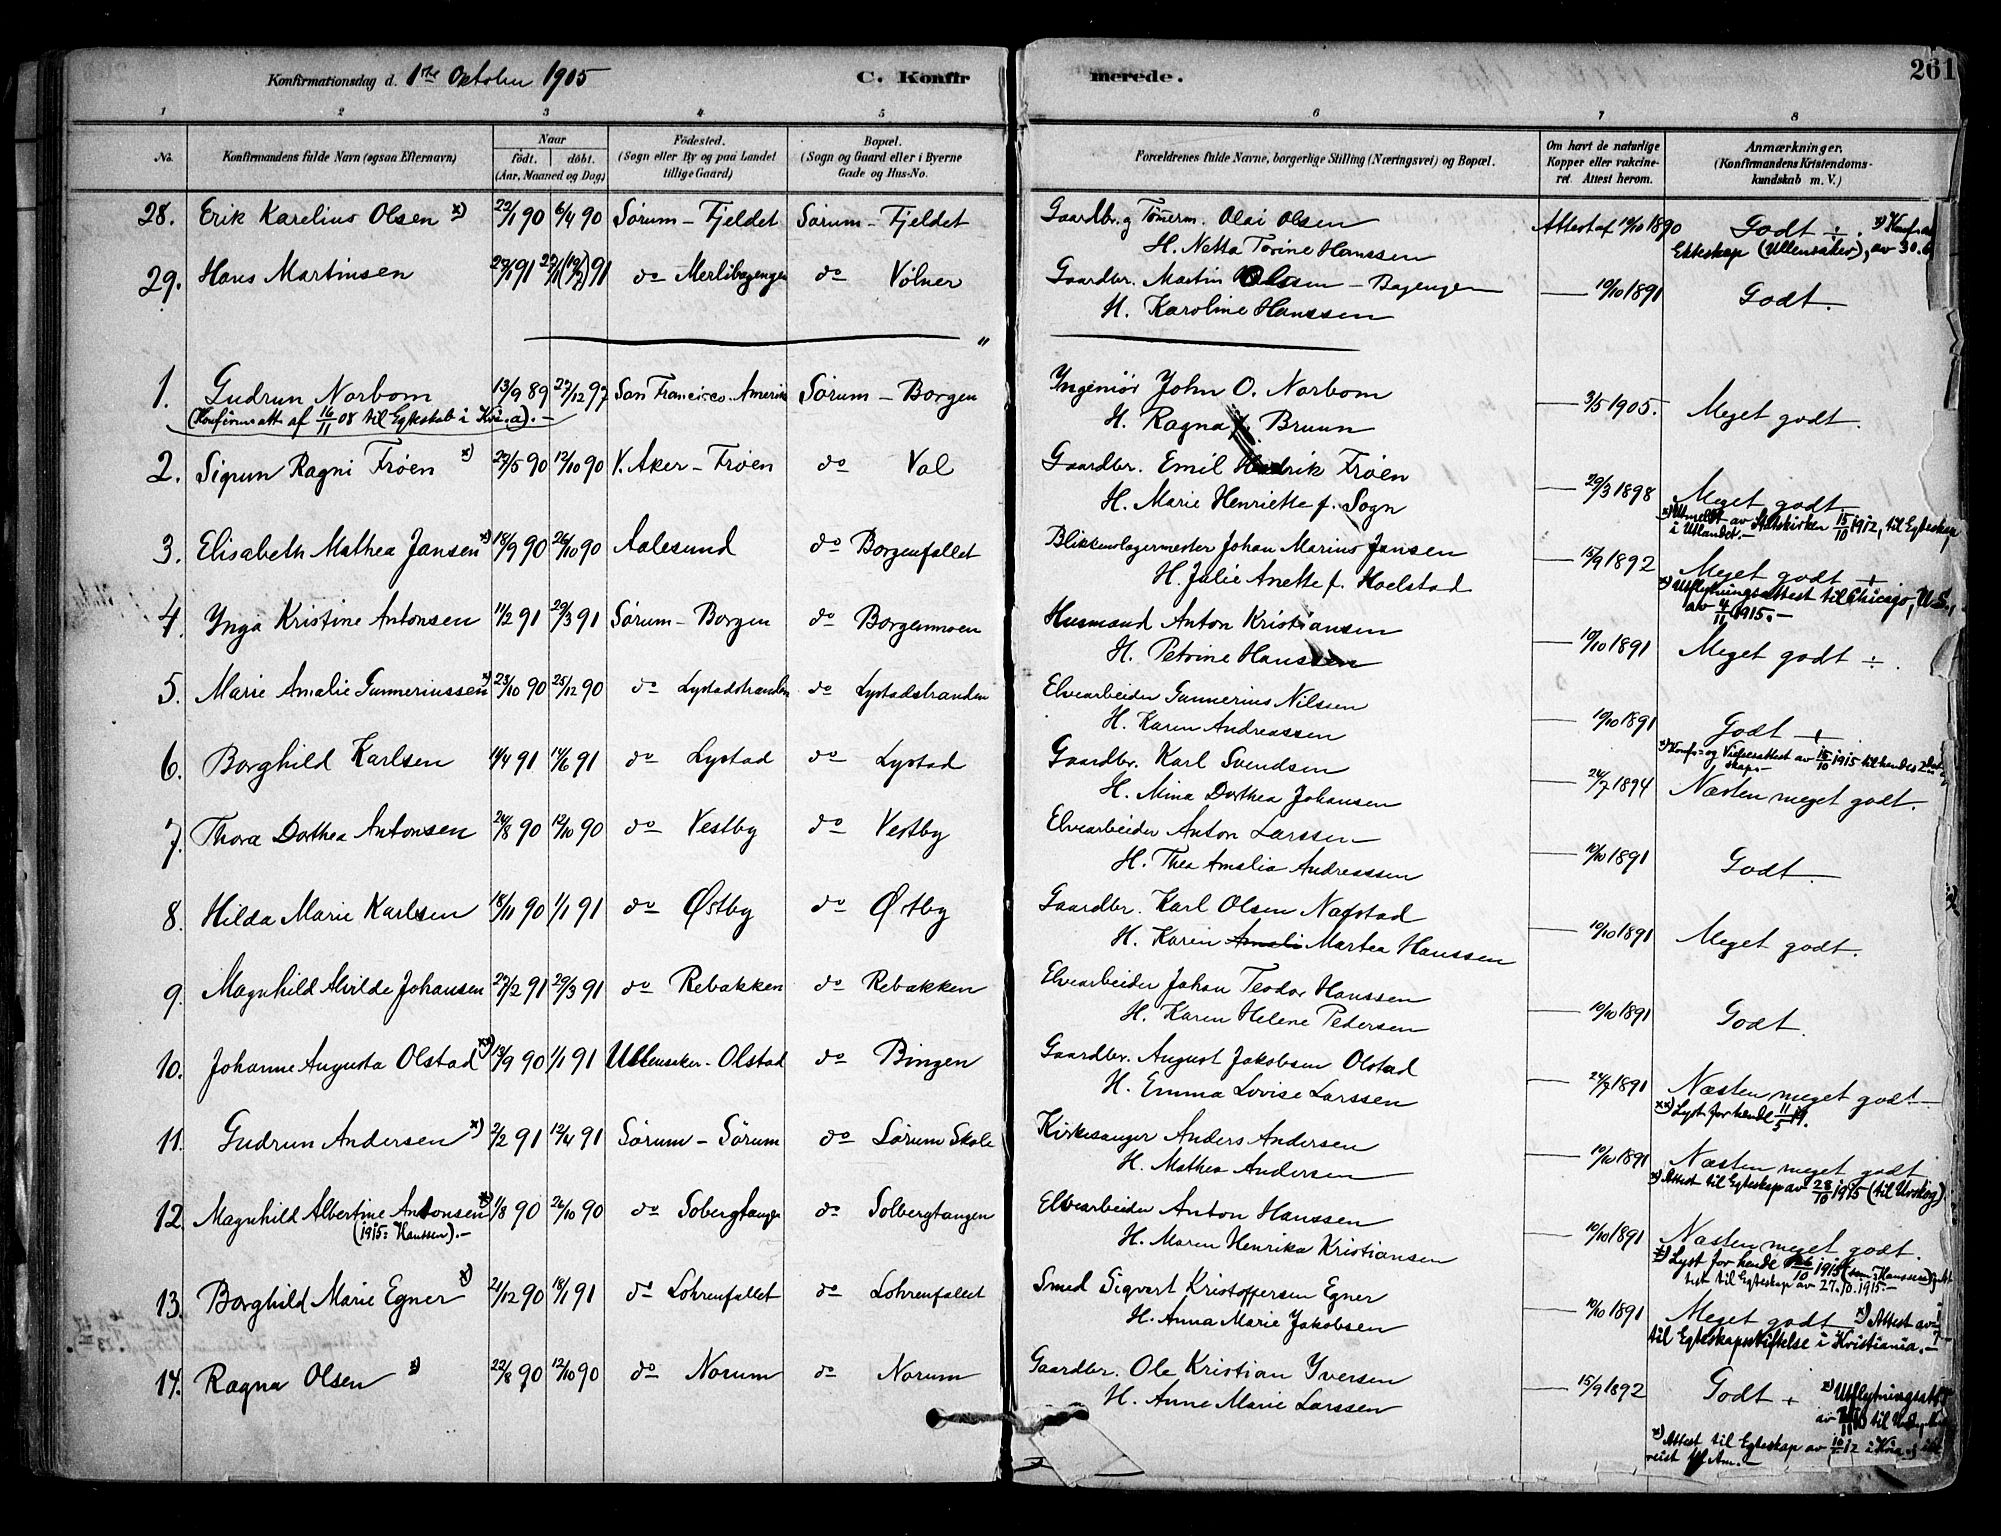 Konfirmationsdag d. 1ste October 1905 C. Konfirmerede. 261
1 2 3 4 5 6 7 8
No. Konfirmandens fulde Navn (ogsaa Efternavn) Naar födt. döbt. (Aar, Maaned og Dag) Födested. (Sogn eller By og paa Landet tillige Gaard) Bopæl. (Sogn og Gaard eller i Byerne Gade og Hus-No. Forældrenes fulde Navne, borgerlige Stilling (Næringsvei) og Bopæl. Om havt de naturlige Kopper eller vakcineret. Attest herom. Anmærkninger. (Konfirmandens Kristendomskundskab m. V.)
28. Erik Karelius Olsen x) 22/1 90 6/4 90 Sørum – Fjeldet Sørum – Fjeldet Gaardbr. og Tømmerm. Olai Olsen Attest af 10/10 1890 Godt ÷.
H. Netta Torine Hanssen Egteskap (Ullensaker), av 30.6
29. Hans Martinsen do Merlibagengen do Vølner Gaardbr. Martin Olssen – Bagengen — 10/10 1891 Godt.
H. Karoline Hanssen
1. Gudrun Norbom 13/9 89 27/12 97 San Francisco. Amerika Sørum – Borgen Ingeniør John O. Norbom — 3/5 1905. Meget godt.
(Konfirm.att. af 16/11 08 til Egteskab i Kr.a). – H. Ragna f. Bruun
2. Sigrun Ragni Frøen x) 27/5 90 12/10 90 V. Aker – Frøen do Val Gaardbr. Emil Hendrik Frøen — 29/3 1898 Meget godt.
H. Marie Henriette f. Sogn x) Utmeldt av Statskirken 15/10 1912, til Egteskap i Utlandet. –
3. Elisabeth Mathea Jansen x) 18/9 90 26/10 90 Aalesund do Borgenfallet Blikkenslagermester Johan Marius Jansen — 15/9 1892 Meget godt ÷
H. Julie Anette f. Hoelstad x) Utflytningsattest til Chicago, U.S., av 4/11 1915. –
4. Ynga Kristine Antonsen 11/2 91 29/3 91 Sørum – Borgen do Borgenmoen Husmand Anton Kristiansen — 10/10 1891 Meget godt ÷.
H. Petrine Hanssen
5. Marie Amalie Gunneriussen x) 23/10 90 25/12 90 do Lystadstranden do Lystadstranden Elvearbeider Gunnerius Nilssen — 10/10 1891 Godt ÷
H. Karen Andreassen x) Konf.- og Vielsesattest av 15/10 1915 til hendes 2det
6. Borghild Karlsen 14/4 91 14/6 91 do Lystad do Lystad Gaardbr. Karl Svendsen — 24/7 1894 Næsten meget godt.
H. Mina Dorthea Johansen
7. Thora Dorthea Antonsen 24/8 90 12/10 90 do Vestby do Vestby Elvearbeider Anton Larssen — 10/10 1891 Godt.
H. Thea Amalia Andreassen
8. Hilda Marie Karlsen 18/11 90 1/1 91 do Østby do Østby Gaardbr. Karl Olsen Nafstad — 10/10 1891 Meget godt.
H. Karen Amali Martea Hanssen
9. Magnhild Alvilde Johansen 27/2 91 29/3 91 do Rebakken do Rebakken Elvearbeider Johan Teodor Hanssen — 10/10 1891 Godt.
H. Karen Helene Pedersen
10. Johanne Augusta Olstad xx) 19/9 90 1/1 91 Ullensaker – Olstad do Bingen Gaardbr. August Jakobsen Olstad — 24/7 1891 Næsten meget godt
H. Emma Lovise Larssen xx) Lyst for hende 11/5
11. Gudrun Andersen x) 2/2 91 12/4 91 Sørum – Sørum do Sørum Skole Kirkesanger Anders Andersen — 10/10 1891 Næsten meget godt
H. Mathea Andersen x) Attest til Egteskap av 28/10 1915 (til Urskog)
12. Magnhild Albertine Antonsen x) 1/8 90 26/10 90 do Solbergtangen do Solbergtangen Elvearbeider Anton Hanssen — 10/10 1891 Næsten meget godt.
(1915: Hanssen). – H. Maren Henrika Kristiansen x) Lyst for hende 1915 (som: Hanssen). Attest til Egteskap av 27.10.1915. –
13. Borghild Marie Egner x) 21/12 90 18/1 91 do Lohrenfallet do Lohrenfallet Smed Sigvart Kristoffersen Egner — 10/10 1891 Meget godt x) Attest av
H. Anna Marie Jakobsen til Egteskapsstiftelse i Kristiania. –
14. Ragna Olsen x) 22/8 90 12/10 90 do Norum do Norum Gaardbr. Ole Kristian Yversen — 15/9 1892 Godt ÷ x) Utflytningsatt.
H. Anne Marie Larssen
x) Attest til Egteskap av 10/ 12 i Kr.a